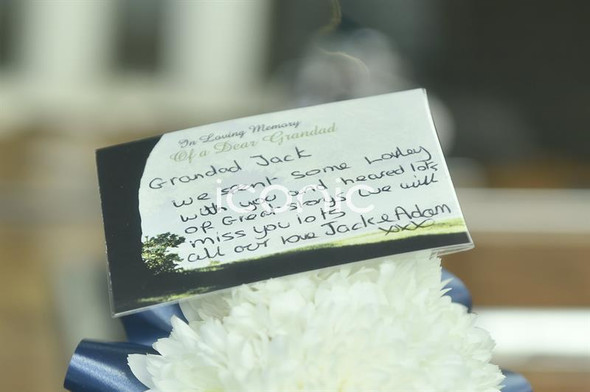 In Loving Memory
Of a Dear Grandad
Grandad Jack
we sent some Loxley
with you and heared lots
of Great storys we will
miss you lots
all our love Jack & Adam
xxxx
iconic